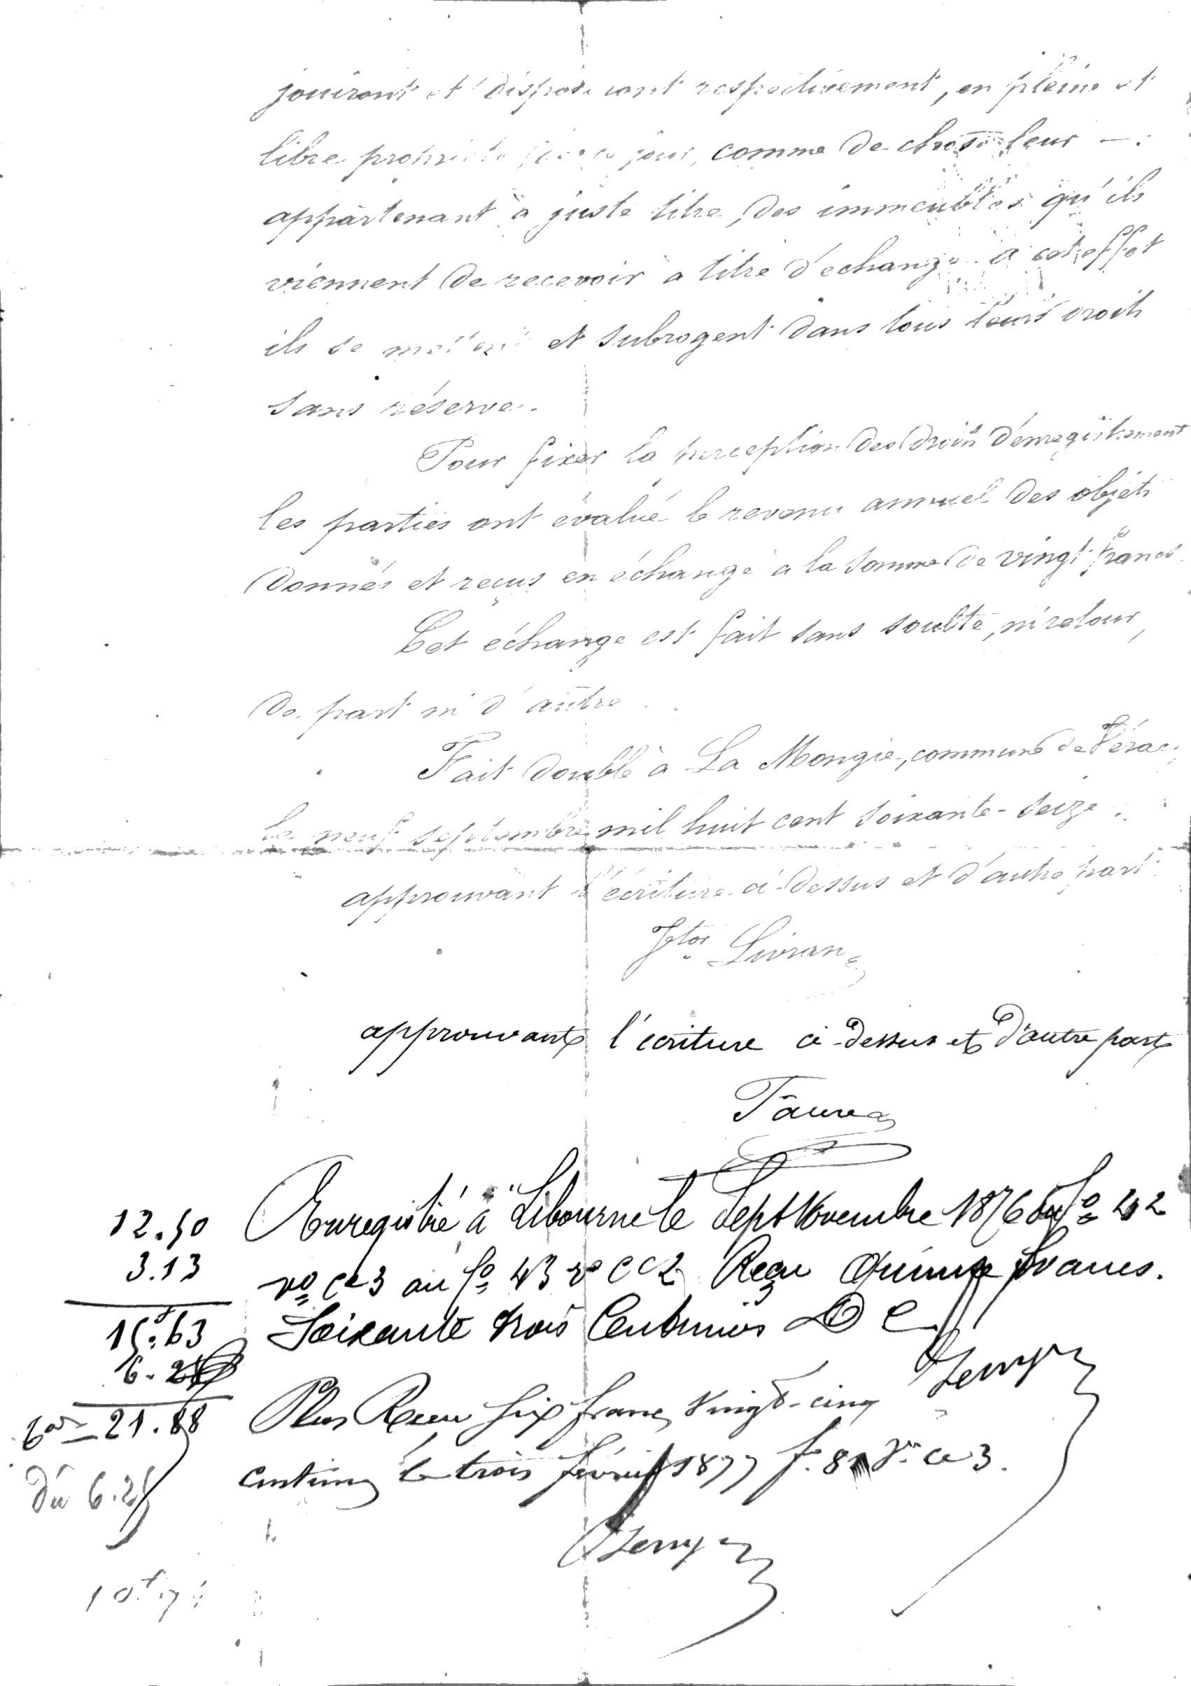 jouiront et disposeront respectivement, en pleine et
libre propriété de ce jour, comme de chose leur —
appartenant à juste titre, des immeubles qu'ils
viennent de recevoir à titre d'échange. à cet effet
ils se mettent et subrogent dans tous leurs droits
sans réserve.
Pour fixer la perception des droits d'enregistrement
les parties ont évalué le revenu annuel des objets
donnés et reçus en échange à la somme de vingt francs.
Cet échange est fait sans soulte, ni retour,
de part ni d'autre.
Fait double à La Mongie, commune de Vérac,
le neuf septembre mil huit cent soixante-seize.
approuvant l'écriture ci-dessus et d'autre part
Livran
approuvant l'écriture ci-dessus et d'autre part
Faure
Enregistré à Libourne le Sept Novembre 1876
12.50
vo cce3 au fo 43 ro cc2 Reçu Quinze francs.
3.13
Soixante trois Centimes D C
15.63
6.25
Plus Reçu six francs vingt-cinq
21.88
centimes le trois février 1877 f. 81 Vo ce 3.
Dû 6.25